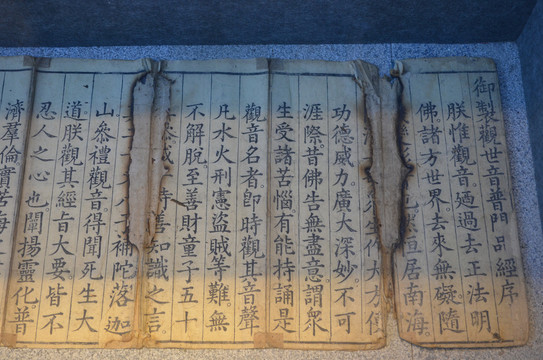 御製觀世音普門品經序
朕惟觀音廼過去正法明
佛諸方世界去來無礙隨
居南海
生作大方便
功德威力廣大深妙不可
涯際昔佛告無盡意謂眾
生受諸苦惱有能持誦是
觀音名者卽時觀其音聲
凡水火刑憲盜賊等難無
不解脫至善財童子五十
善知識之言
補陀落迦
山叅禮觀音得聞死生大
道朕觀其經旨大要皆不
忍人之心也闡揚靈化普
濟羣倫實苦海